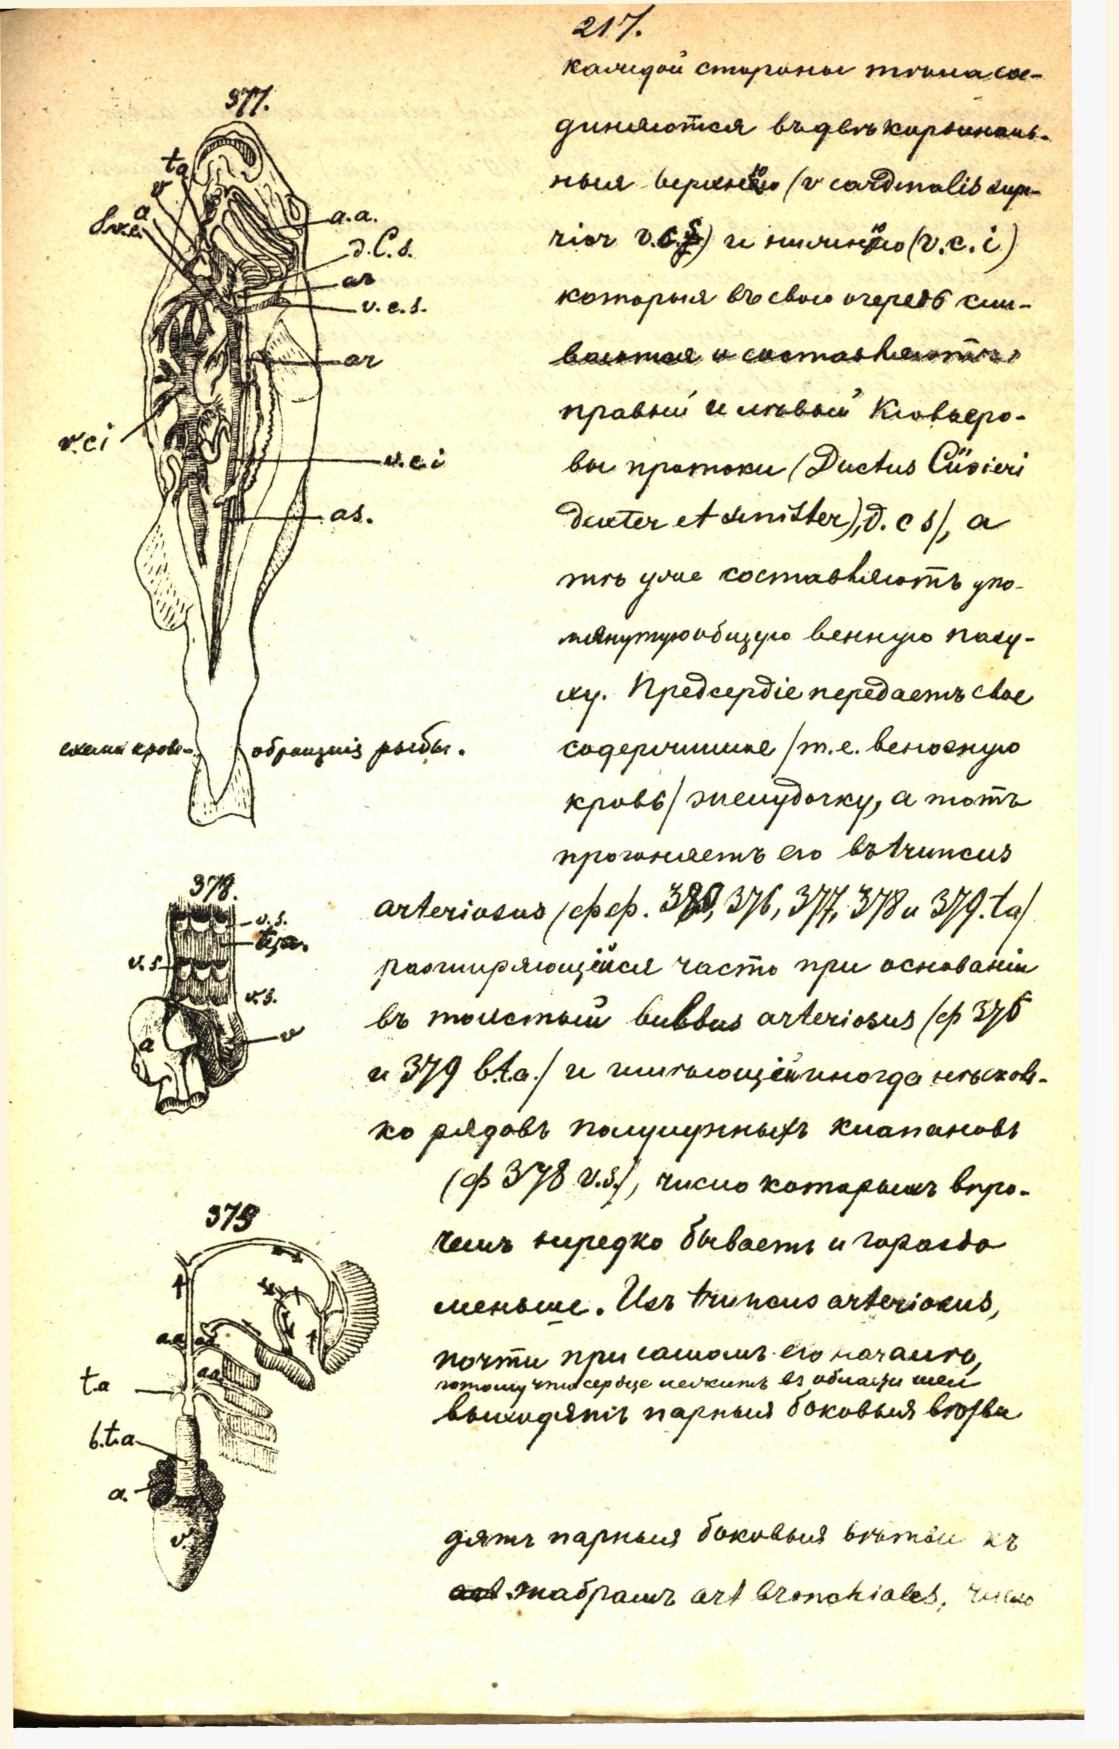 217.
каждой стороны тѣла сое-
диняются въ двѣ кардиналь-
ныя верхнюю (v cardinalis supe-
rior v.c.s) и нижнюю (v.c.i)
которыя въ свою очередь сли-
ваются и составляютъ
правый и лѣвый Кювьеро-
вы протоки (Ductus Cüvieri
dexter et sinister), d. c s/, а
тѣ уже составляютъ упо-
мянутую общую венную пазу-
ху. Предсердіе передаетъ свое
содержимое /т.е. венозную
кровь/ желудочку, а тотъ
прогоняетъ его въ truncus
arteriosus (фф. 380, 376, 377, 378 и 379. ta/
расширяющійся часто при основаніи
въ толстый bulbus arteriosus (ф 376
и 379 b.t.a./ и имѣющій иногда нѣсколь-
ко рядовъ полулунныхъ клапановъ
(ф 378 v.s/, число которыхъ впро-
чемъ нерѣдко бываетъ и гораздо
меньше. Изъ truncus arteriosus,
почти при самомъ его началѣ,
потому что сердце лежитъ въ области шеи
выходятъ парныя боковыя вѣтви
дятъ парныя боковыя вѣтви къ
жабрамъ art bronchiales, число
377.
ta
v
a
S.v.c.
a.a.
d.C.s.
ar
v.c.s.
ar
v.c i
v.c i
as.
схема крово-
обращенія рыбы.
378.
v.s.
t.a.
v.s
v.s.
a
v
379
aa
aa
aa
ta
b.t.a
a.
v.